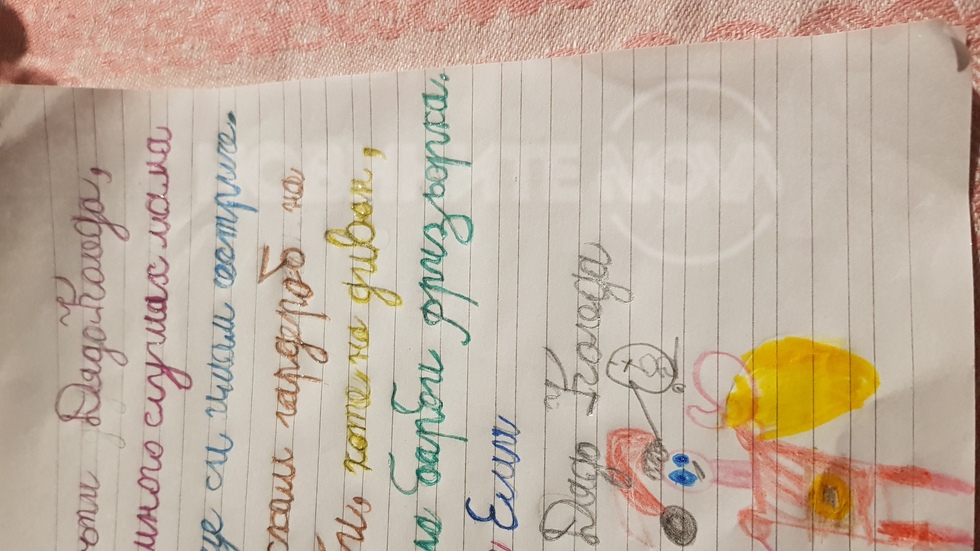 Дядо Коледа,
много слушах мама
ще си имам сестриче.
гардероб на
коте на диван,
барби фризьорка.
Ели
Дядо Коледа